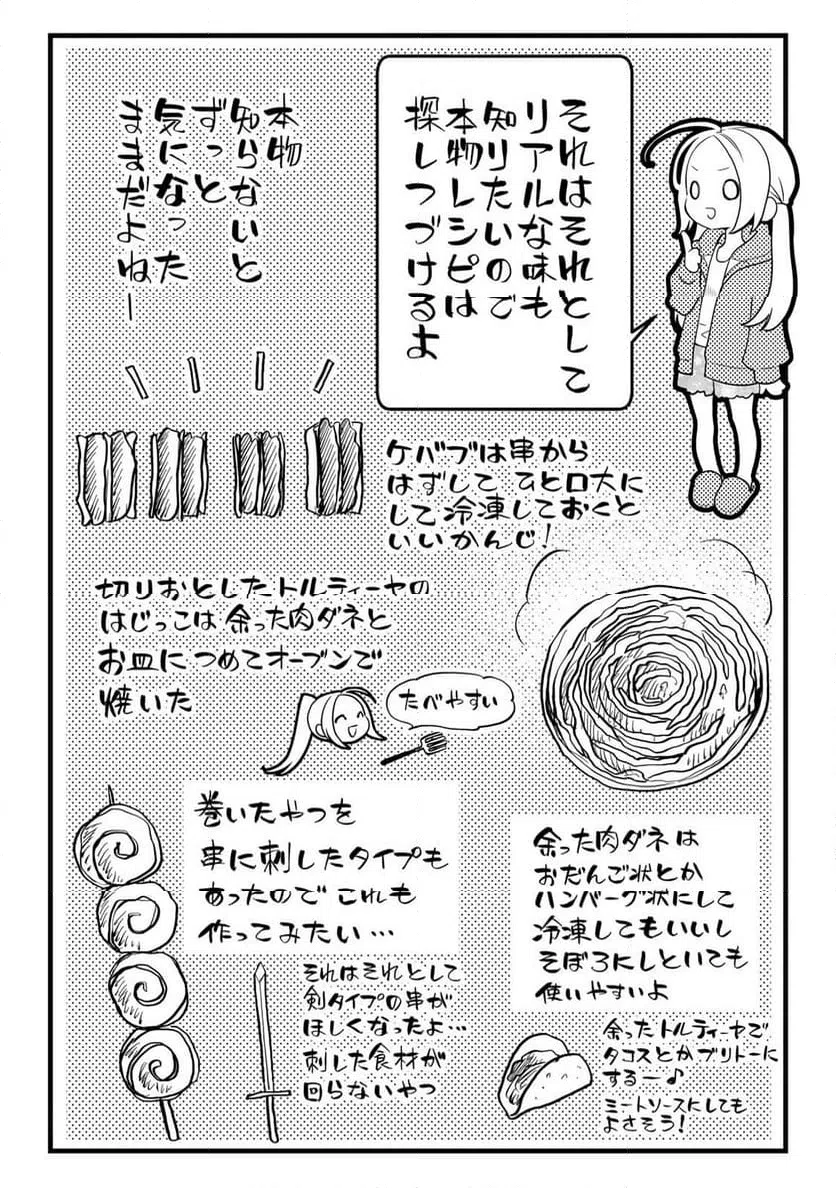 それはそれとして
リアルな味も
知りたいので
本物レシピは
探しつづけるよ
本物
知らないと
ずっと
気になった
ままだよねー
ケバブは串から
はずして ひと口大に
して冷凍しておくと
いいかんじ!
切りおとしたトルティーヤの
はじっこは 余った肉ダネと
お皿につめてオーブンで
焼いた
たべやすい
巻いたやつを
串に刺したタイプも
あったので これも
作ってみたい…
余った肉ダネは
おだんご状とか
ハンバーグ状にして
冷凍してもいいし
そぼろにしといても
使いやすいよ
それはそれとして
剣タイプの串が
ほしくなったよ…
刺した食材が
回らないやつ
余ったトルティーヤで
タコスとかブリトーに
するー♪
ミートソースにしても
よさそう!